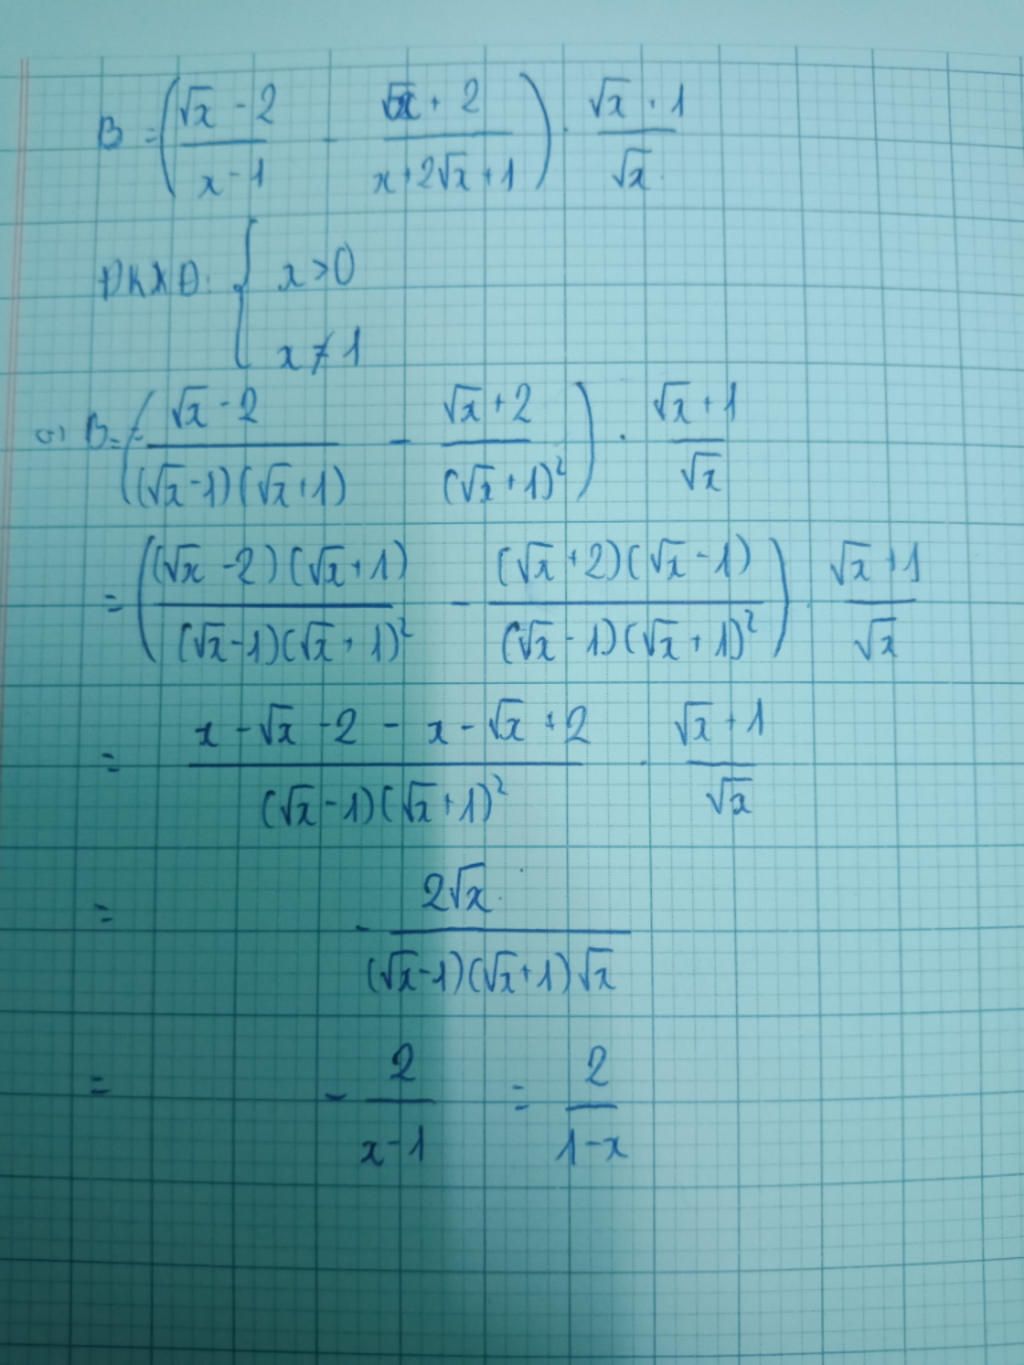 B = ((√x - 2)/(x - 1) - (√x + 2)/(x + 2√x + 1)) . (√x + 1)/√x
ĐKXĐ: { x > 0
x ≠ 1
B = ((√x - 2)/((√x - 1)(√x + 1)) - (√x + 2)/(√x + 1)²) . (√x + 1)/√x
= (((√x - 2)(√x + 1))/((√x - 1)(√x + 1)²) - ((√x + 2)(√x - 1))/((√x - 1)(√x + 1)²)) . (√x + 1)/√x
= (x - √x - 2 - x - √x + 2)/((√x - 1)(√x + 1)²) . (√x + 1)/√x
= - 2√x/((√x - 1)(√x + 1)√x)
= - 2/(x - 1) = 2/(1 - x)